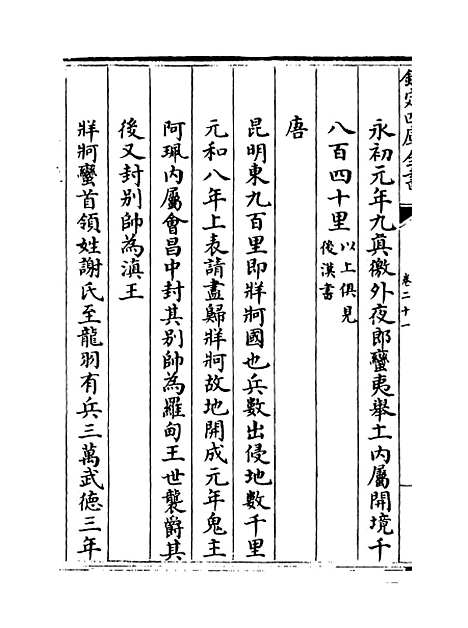 欽定四庫全書
卷二十一
永初元年九真徼外夜郎蠻夷舉土内屬開境千
八百四十里以上俱見後漢書
唐
昆明東九百里即牂牁國也兵數出侵地數千里
元和八年上表請盡歸牂牁故地開成元年鬼主
阿珮内屬會昌中封其别帥為羅甸王世襲爵其
後又封别帥為滇王
牂牁蠻首領姓謝氏至龍羽有兵三萬武德三年